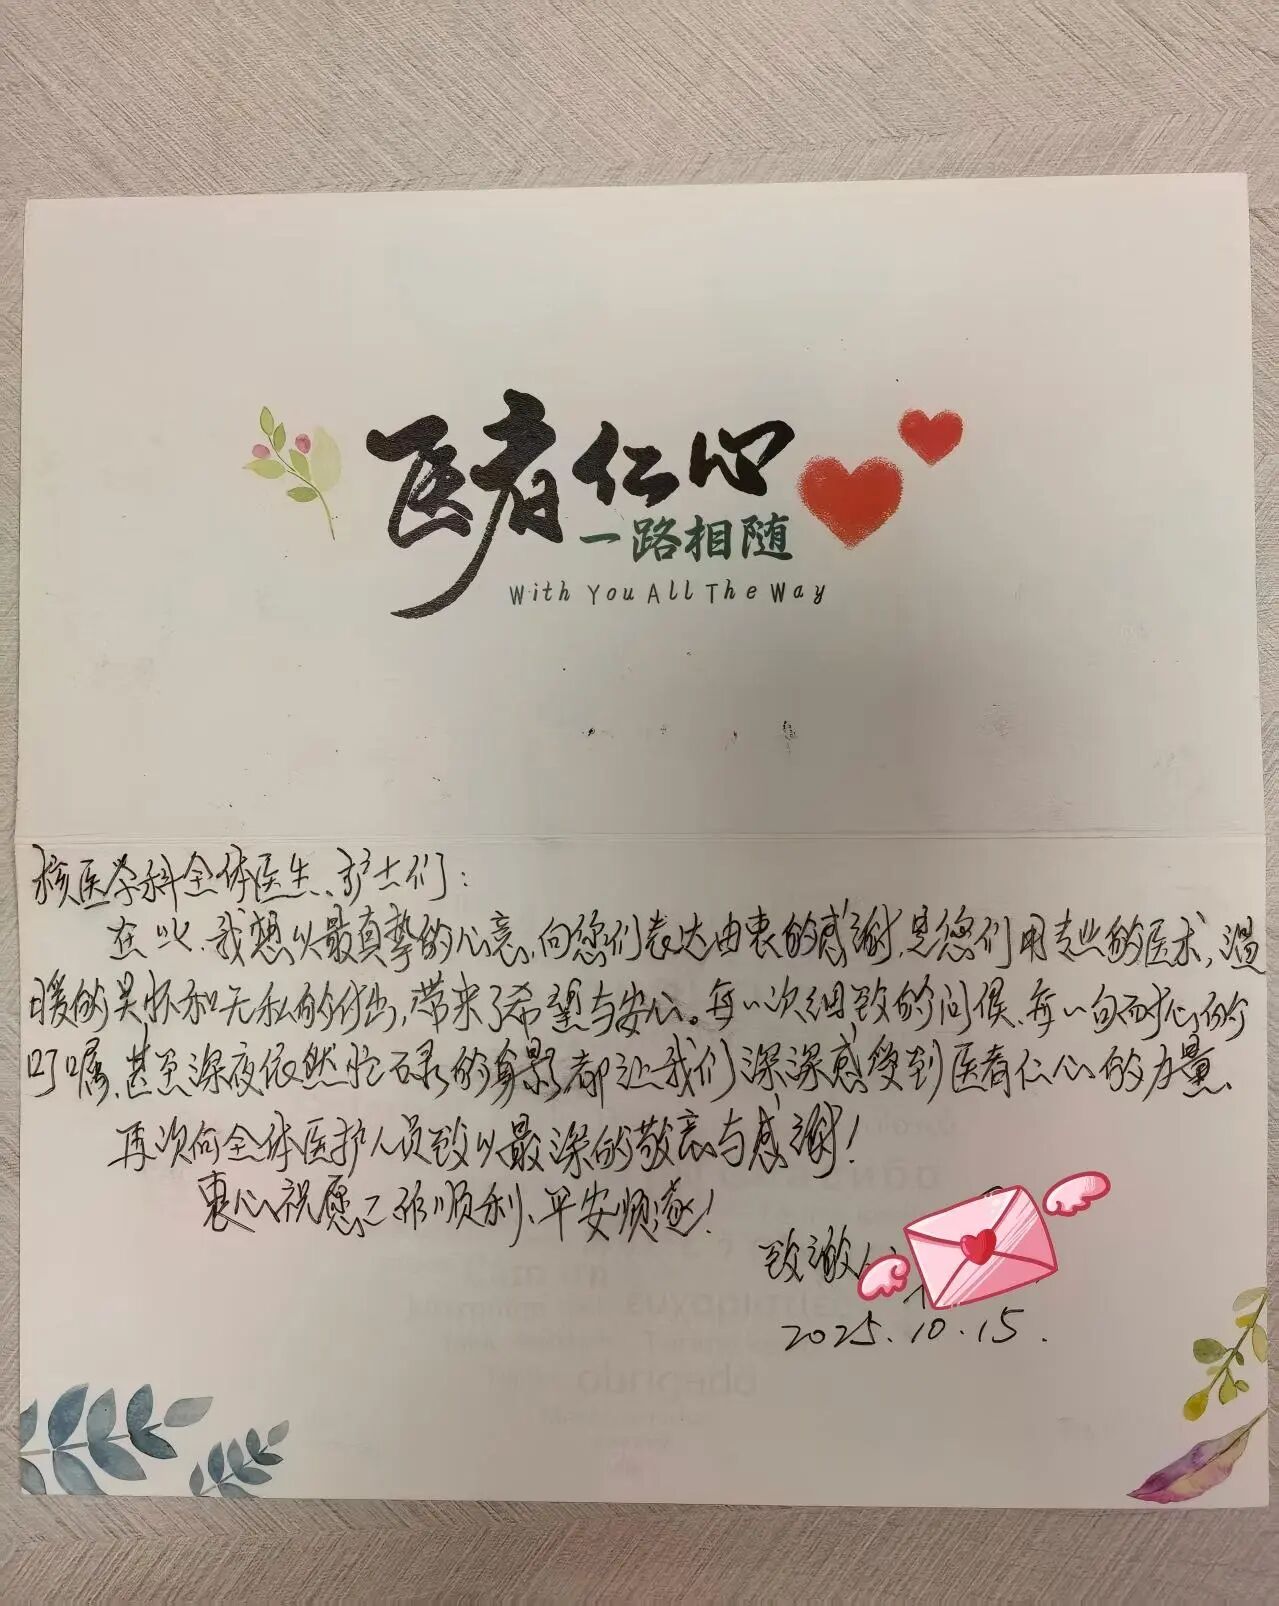 医者仁心
一路相随
With You All The Way
核医学科全体医生、护士们：
在此，我想以最真挚的心意，向您们表达由衷的感谢，是您们用专业的医术，温
暖的关怀和无私的付出，带来了希望与安心。每一次细致的问候、每一句耐心的
叮嘱、甚至深夜依然忙碌的身影都让我们深深感受到医者仁心的力量。
再次向全体医护人员致以最深的敬意与感谢！
衷心祝愿工作顺利、平安顺遂！
致谢人
2025.10.15.